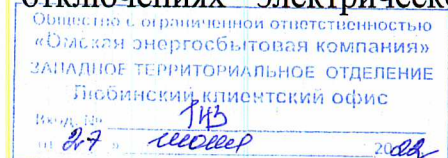 отключениях электрическо
Общество с ограниченной ответственностью
«Омская энергосбытовая компания»
ЗАПАДНОЕ ТЕРРИТОРИАЛЬНОЕ ОТДЕЛЕНИЕ
Любинский клиентский офис
Вход. №
«27» 2022